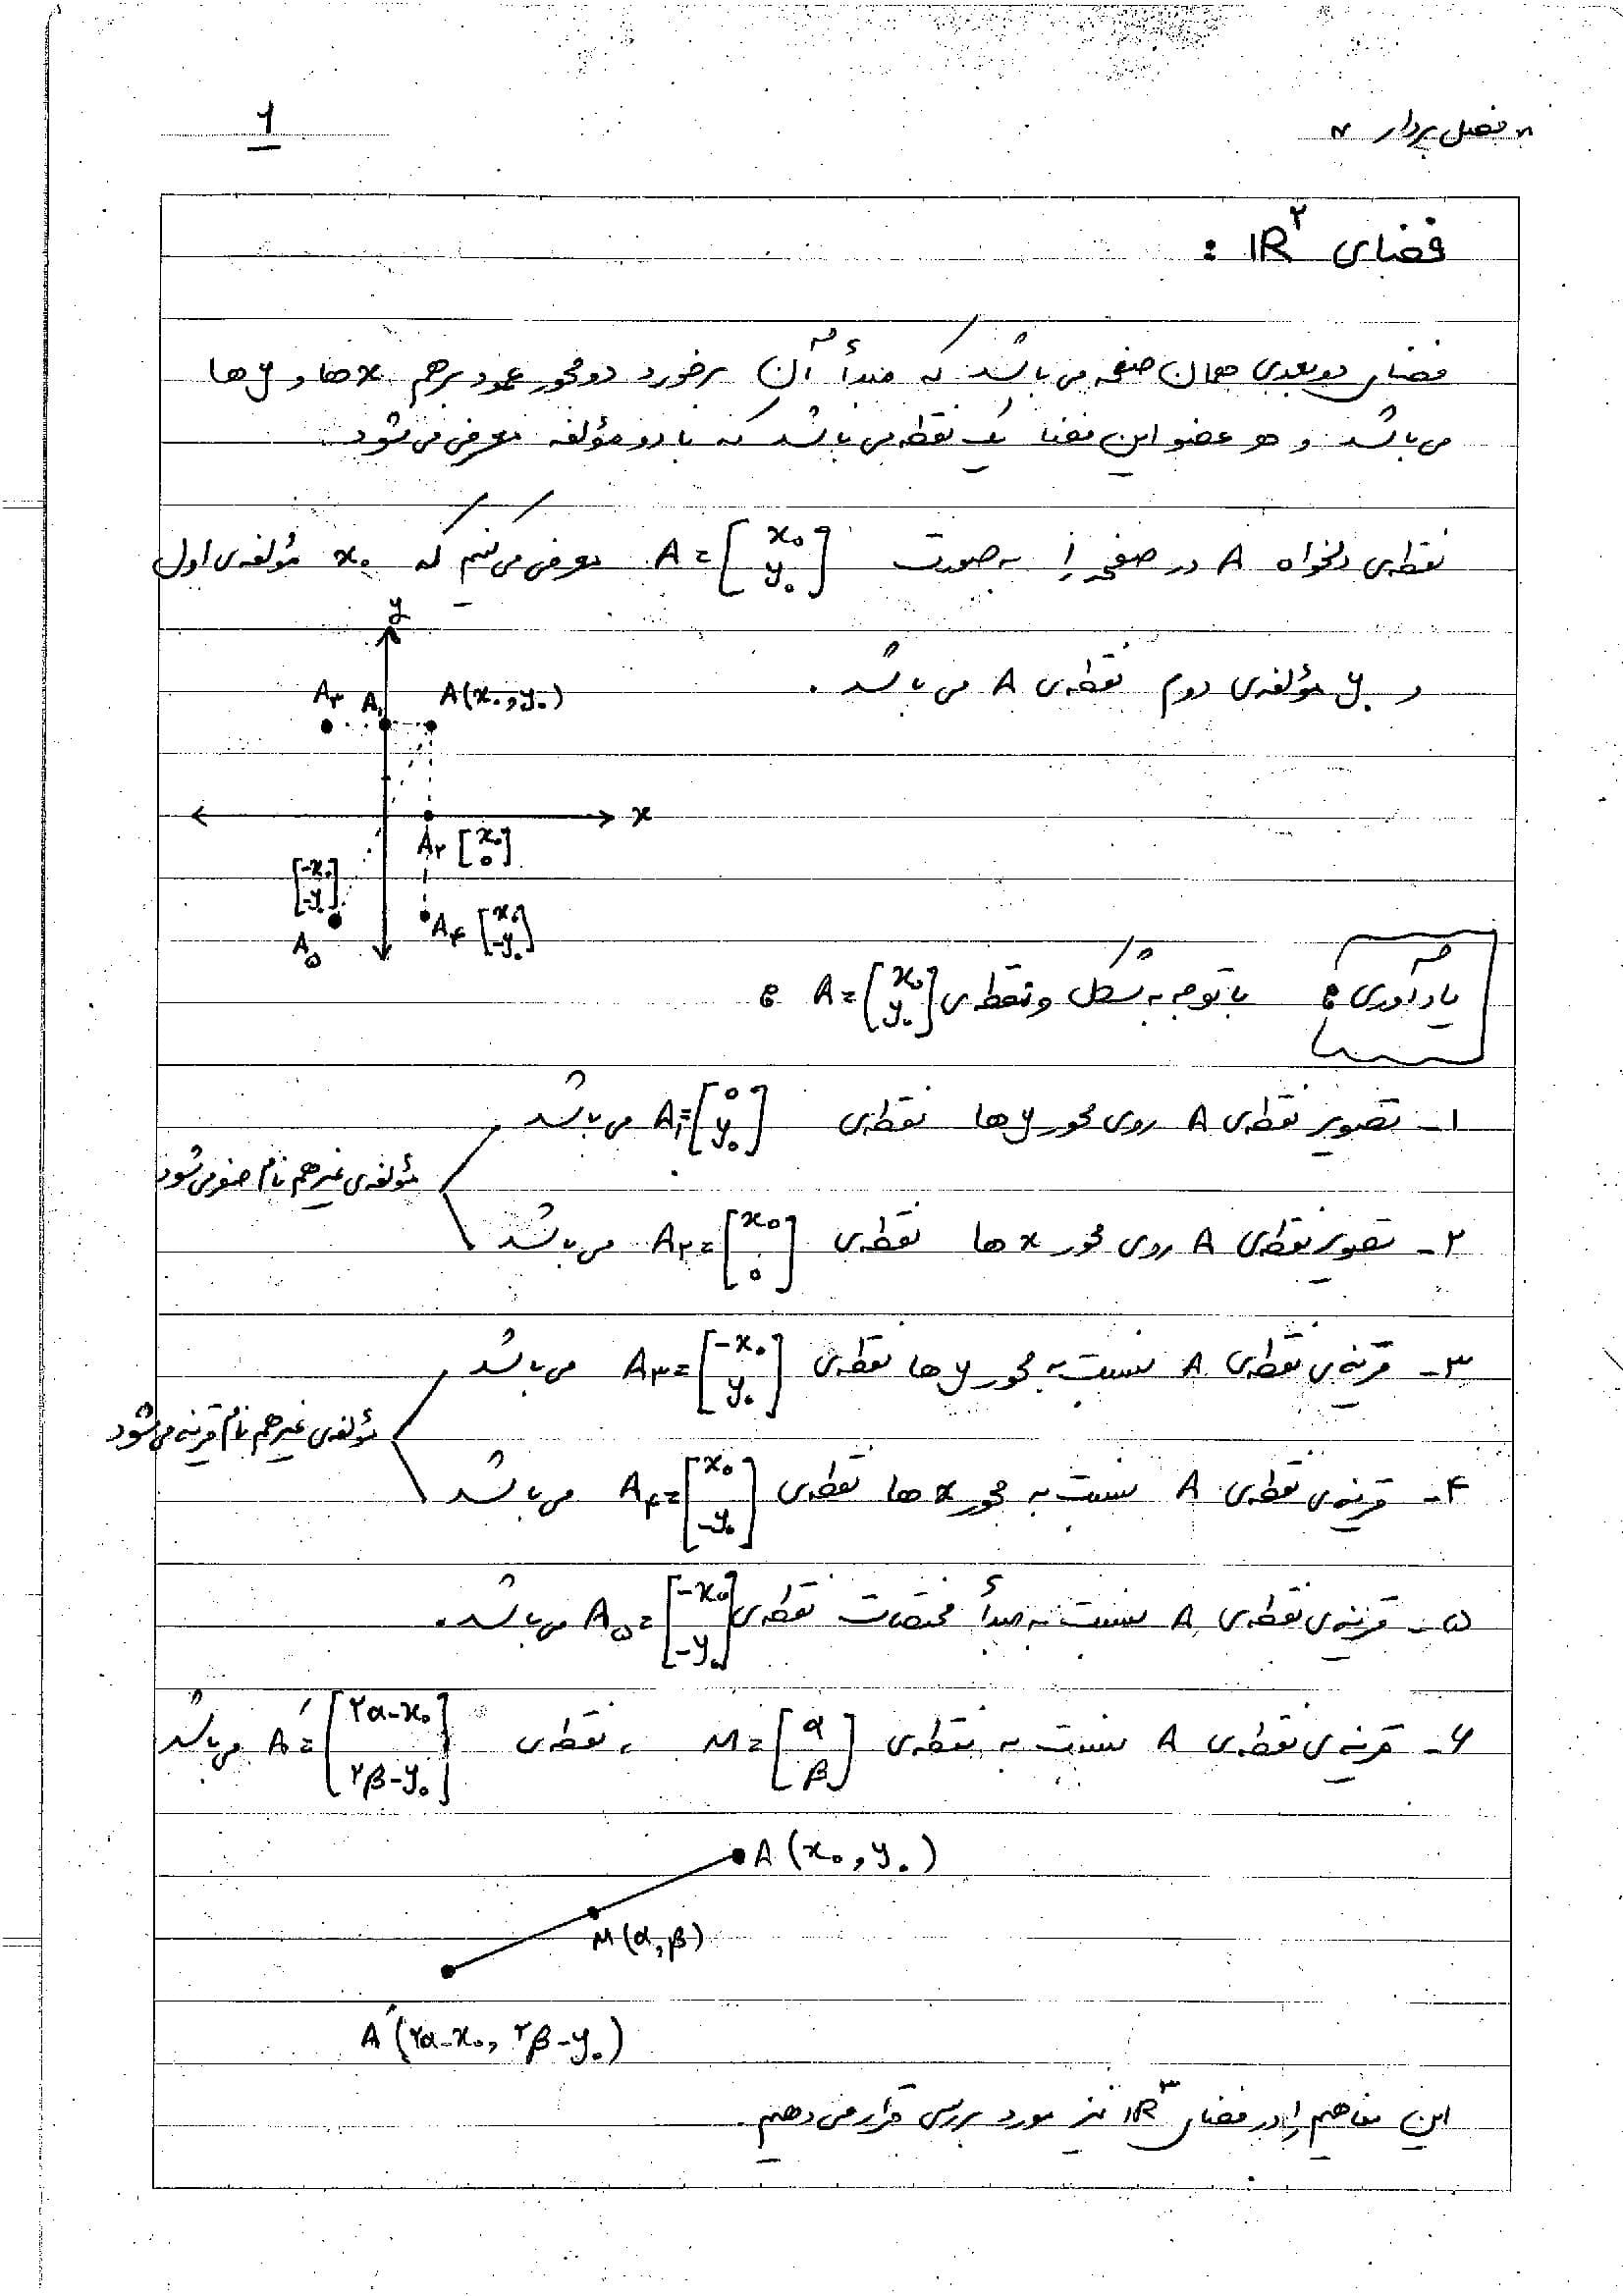 « فصل بردار »
1
فضای IR² :
فضای دوبعدی همان صفحه می باشد که مبدأ آن برخورد دو محور عمود برهم xها و yها
می باشد و هر عضو این فضا یک نقطه می باشد که با دو مؤلفه معرفی می شود
نقطه‌ی دلخواه A در صفحه را به صورت A = [x₀ y₀] معرفی می کنیم که x₀ مؤلفه‌ی اول
و y₀ مؤلفه‌ی دوم نقطه‌ی A می باشد .
y
A₃ A₁ A(x₀, y₀)
x
A₂ [x₀ 0]
[-x₀ -y₀]
A₄ [x₀ -y₀]
A₅
یادآوری : با توجه به شکل و نقطه‌ی A = [x₀ y₀] :
۱- تصویر نقطه‌ی A روی محور yها نقطه‌ی A₁ = [0 y₀] می باشد
مؤلفه‌ی غیرهم نام صفر می شود
۲- تصویر نقطه‌ی A روی محور xها نقطه‌ی A₂ = [x₀ 0] می باشد
۳- قرینه‌ی نقطه‌ی A نسبت به محور yها نقطه‌ی A₃ = [-x₀ y₀] می باشد
مؤلفه‌ی غیرهم نام قرینه می شود
۴- قرینه‌ی نقطه‌ی A نسبت به محور xها نقطه‌ی A₄ = [x₀ -y₀] می باشد
۵- قرینه‌ی نقطه‌ی A نسبت به مبدأ مختصات نقطه‌ی A₅ = [-x₀ -y₀] می باشد.
۶- قرینه‌ی نقطه‌ی A نسبت به نقطه‌ی M = [α β] ، نقطه‌ی A' = [۲α-x₀ ۲β-y₀] می باشد
A (x₀, y₀)
M (α, β)
A' (۲α-x₀, ۲β-y₀)
این مفاهیم را در فضای IR³ نیز مورد بررسی قرار می دهیم.